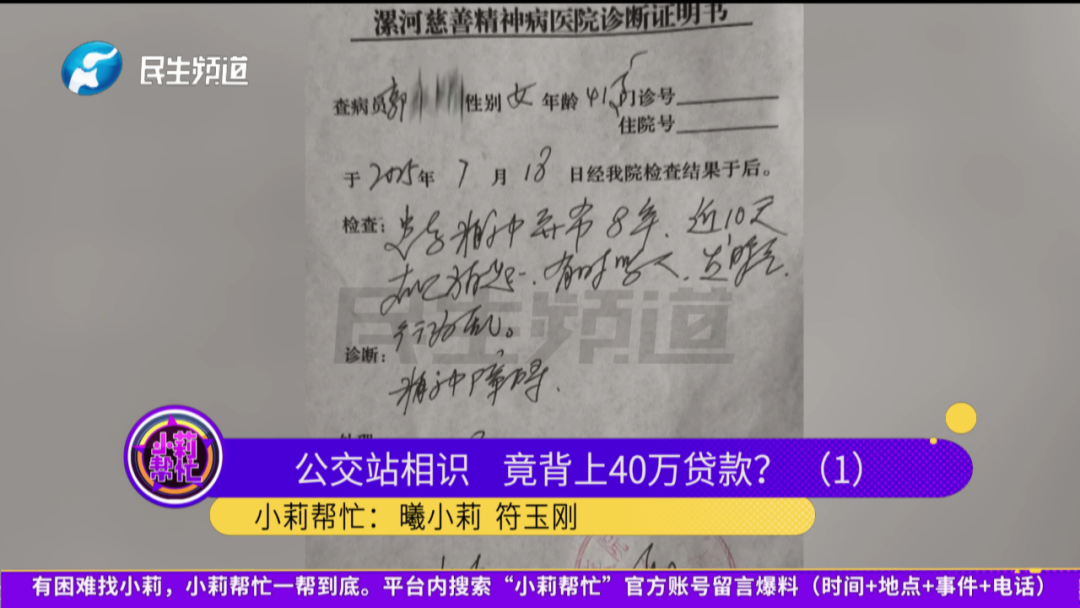 漯河慈善精神病医院诊断证明书
民生频道
查病员郭 性别 女 年龄 41岁 门诊号
住院号
于 2025年 7 月 18 日经我院检查结果于后。
检查: 患者精神异常8年. 近10天
有时骂人.
行为乱。
诊断:
精神障碍.
民生频道
小莉帮忙
公交站相识 竟背上40万贷款？（1）
小莉帮忙：曦小莉 符玉刚
有困难找小莉，小莉帮忙一帮到底。平台内搜索“小莉帮忙”官方账号留言爆料（时间+地点+事件+电话）